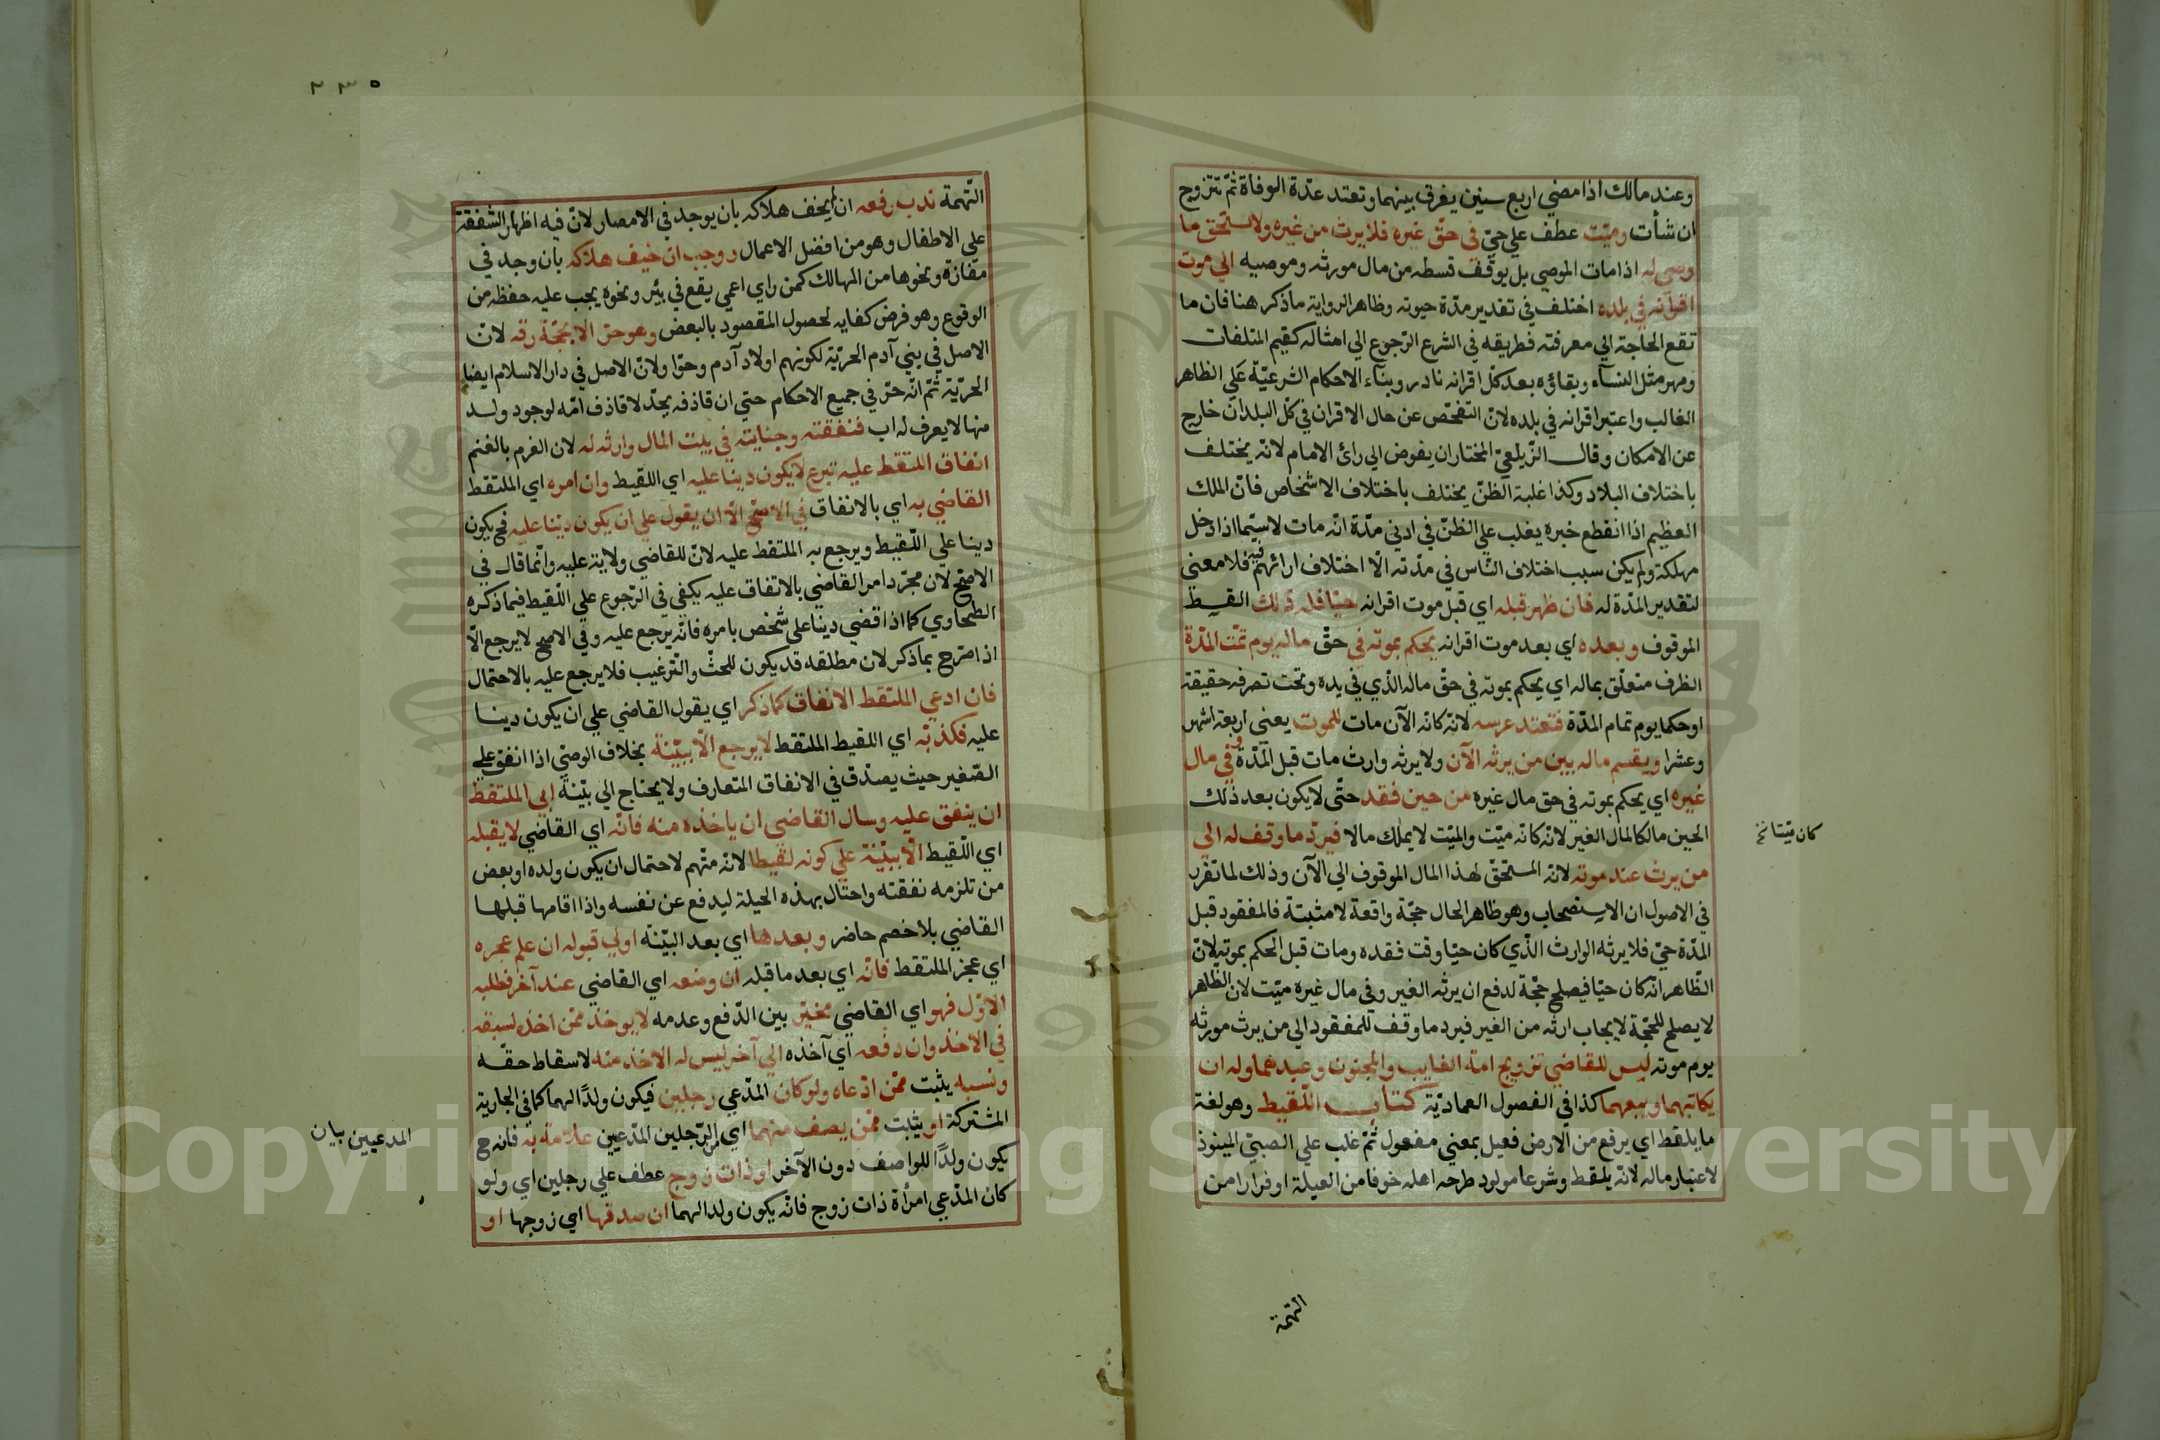 وعند مالك اذا مضي اربع سنين يفرق بينهما وتعتد عدّة الوفاة ثمّ تتزوج
ان شأت وميّت عطف علي حيّ في حقّ غيره فلا يرث من غيره ولا يستحق ما
وصي له اذا مات الموصي بل يوقّف قسطه من مال مورثه وموصيه الي موت
اقرانه في بلده اختلف في تقدير مدّة حيوته وظاهر الرواية ما ذكر هنا فان ما
تقع الحاجة الي معرفته فطريقه في الشرع الرّجوع الي امثاله كقيم المتلفات
ومهر مثل النسآء وبقاؤه بعد كلّ اقرانه نادر وبنآء الاحكام الشرعيّة علي الظاهر
الغالب واعتبر اقرانه في بلده لانّ التفحّص عن حال الاقران في كلّ البلدان خارج
عن الامكان وقال الزّيلعيّ المختار ان يفوض الي رائ الامام لانّه يختلف
باختلاف البلاد وكذا غلبة الظنّ يختلف باختلاف الاشخاص فانّ الملك
العظيم اذا انقطع خبره يغلب علي الظنّ في ادني مدّة انّه مات لاسيّما اذا دخل
مهلكة ولم يكن سبب اختلاف النّاس في مدّته الّا اختلاف ارائهم فيه فلا معني
لتقدير المدّة له فان ظهر قبله اي قبل موت اقرانه حيّا فله ذلك القسط
الموقوف وبعده اي بعد موت اقرانه يحكم بموته في حقّ ماله يوم تمّت المدّة
الظرف متعلّق بماله اي يحكم بموته في حقّ ماله الذّي في يده وتحت تصرفه حقيقة
او حكما يوم تمام المدّة فتعتد عرسه لانّه كانّه الآن مات للموت يعني اربعة اشهر
وعشرا ويقسم ماله بين من يرثه الآن ولا يرثه وارث مات قبل المدّة وفي مال
غيره اي يحكم بموته في حق مال غيره من حين فقد حتّي لا يكون بعد ذلك
الحين مالكا لمال الغير لانّه كانّه ميّت والميّت لا يملك مالا فيردّ ما وقف له الي
كان ميّتا نخ
من يرث عند موته لانّه المستحقّ لهذا المال الموقوف الي الآن وذلك لما تقرّر
في الاصول ان الاستصحاب وهو ظاهر الحال حجّة واقعة لا مثبتة فالمفقود قبل
المدّة حيّ فلا يرثه الوارث الذّي كان حيّا وقت فقده ومات قبل الحكم بموته لانّ
الظّاهر انّه كان حيّا فيصلح حجّة لدفع ان يرثه الغير وفي مال غيره ميّت لان الظاهر
لا يصلح للحجّة لايجاب ارثه من الغير فيرد ما وقف للمفقود الي من يرث مورثه
يوم موته ليس للقاضي تزويج امة الغايب والمجنون وعبدهما وله ان
يكاتبهما ويبيعهما كذا في الفصول العماديّة كتاب اللّقيط وهو لغة
ما يلقط اي يرفع من الارض فعيل بمعني مفعول ثمّ غلب علي الصبيّ المنبوذ
لاعتبار ماله لانّه يلقط وشرعا مولود طرحه اهله خوفا من العيلة او فرارا من
التّهمة
٢٣٥
التّهمة ندب رفعه ان لم يخف هلاكه بان يوجد في الامصار لانّ فيه اظهار الشّفقة
علي الاطفال وهو من افضل الاعمال ووجب ان خيف هلاكه بان وجد في
مفازة ونحوها من المهالك كمن راي اعمي يقع في بئر ونحوه يجب عليه حفظه من
الوقوع وهو فرض كفاية لحصول المقصود بالبعض وهو حرّ الا بحجّة رقّه لانّ
الاصل في بني آدم الحرّيّة لكونهم اولاد آدم وحوّا ولانّ الاصل في دار الاسلام ايضا
الحرّيّة ثمّ انّه حرّ في جميع الاحكام حتي ان قاذفه يحدّ لا قاذف امّه لوجود ولد
منها لا يعرف له اب فنفقته وجنايته في بيت المال وارثه له لان الغرم بالغنم
انفاق الملتقط عليه تبرع لا يكون دينا عليه اي اللقيط وان امره اي الملتقط
القاضي به اي بالانفاق في الاصحّ الّا ان يقول علي ان يكون دينا عليه فح يكون
دينا علي اللّقيط ويرجع به الملتقط عليه لانّ للقاضي ولاية عليه وانّما قال في
الاصحّ لان مجرّد امر القاضي بالانفاق عليه يكفي في الرّجوع علي اللّقيط فيما ذكره
الطحاوي كما اذا قضي دينا علي شخص بامره فانّه يرجع عليه وفي الاصح لا يرجع الّا
اذا صرّح بما ذكر لان مطلقه قد يكون للحثّ والتّرغيب فلا يرجع عليه بالاحتمال
فان ادعي الملتقط الانفاق كما ذكر اي يقول القاضي علي ان يكون دينا
عليه فكذّبه اي اللقيط الملتقط لا يرجع الّا ببيّنة بخلاف الوصيّ اذا انفق علي
الصّغير حيث يصدّق في الانفاق المتعارف ولا يحتاج الي بيّنة ابي الملتقط
ان ينفق عليه وسال القاضي ان ياخذه منه فانّه اي القاضي لا يقبله
اي اللّقيط الّا ببيّنة علي كونه لقيطا لانّه متّهم لاحتمال ان يكون ولده او بعض
من تلزمه نفقته واحتال بهذه الحيلة ليدفع عن نفسه واذا اقامها قبلها
القاضي بلا خصم حاضر وبعدها اي بعد البيّنة اولي قبوله ان علم عجزه
اي عجز الملتقط فانّه اي بعد ما قبله ان وضعه اي القاضي عند آخر فطلبه
الاوّل فهو اي القاضي مخيّر بين الدّفع وعدمه لا يوخذ ممّن اخذ لسبقه
في الاخذ وان دفعه اي آخذه الي آخر ليس له الاخذ منه لاسقاط حقّه
ونسبه يثبت ممّن ادّعاه ولو كان المدّعي رجلين فيكون ولدًا لهما كما في الجارية
المشتركة او يثبت ممّن يصف منهما اي الرّجلين المدّعيين علامة به فانه ح
المدعيين بيان
يكون ولدًا للواصف دون الآخر او ذات زوج عطف علي رجلين اي ولو
كان المدّعي امرأة ذات زوج فانّه يكون ولدا لهما ان صدقها اي زوجها او
Copyright © King Saud University